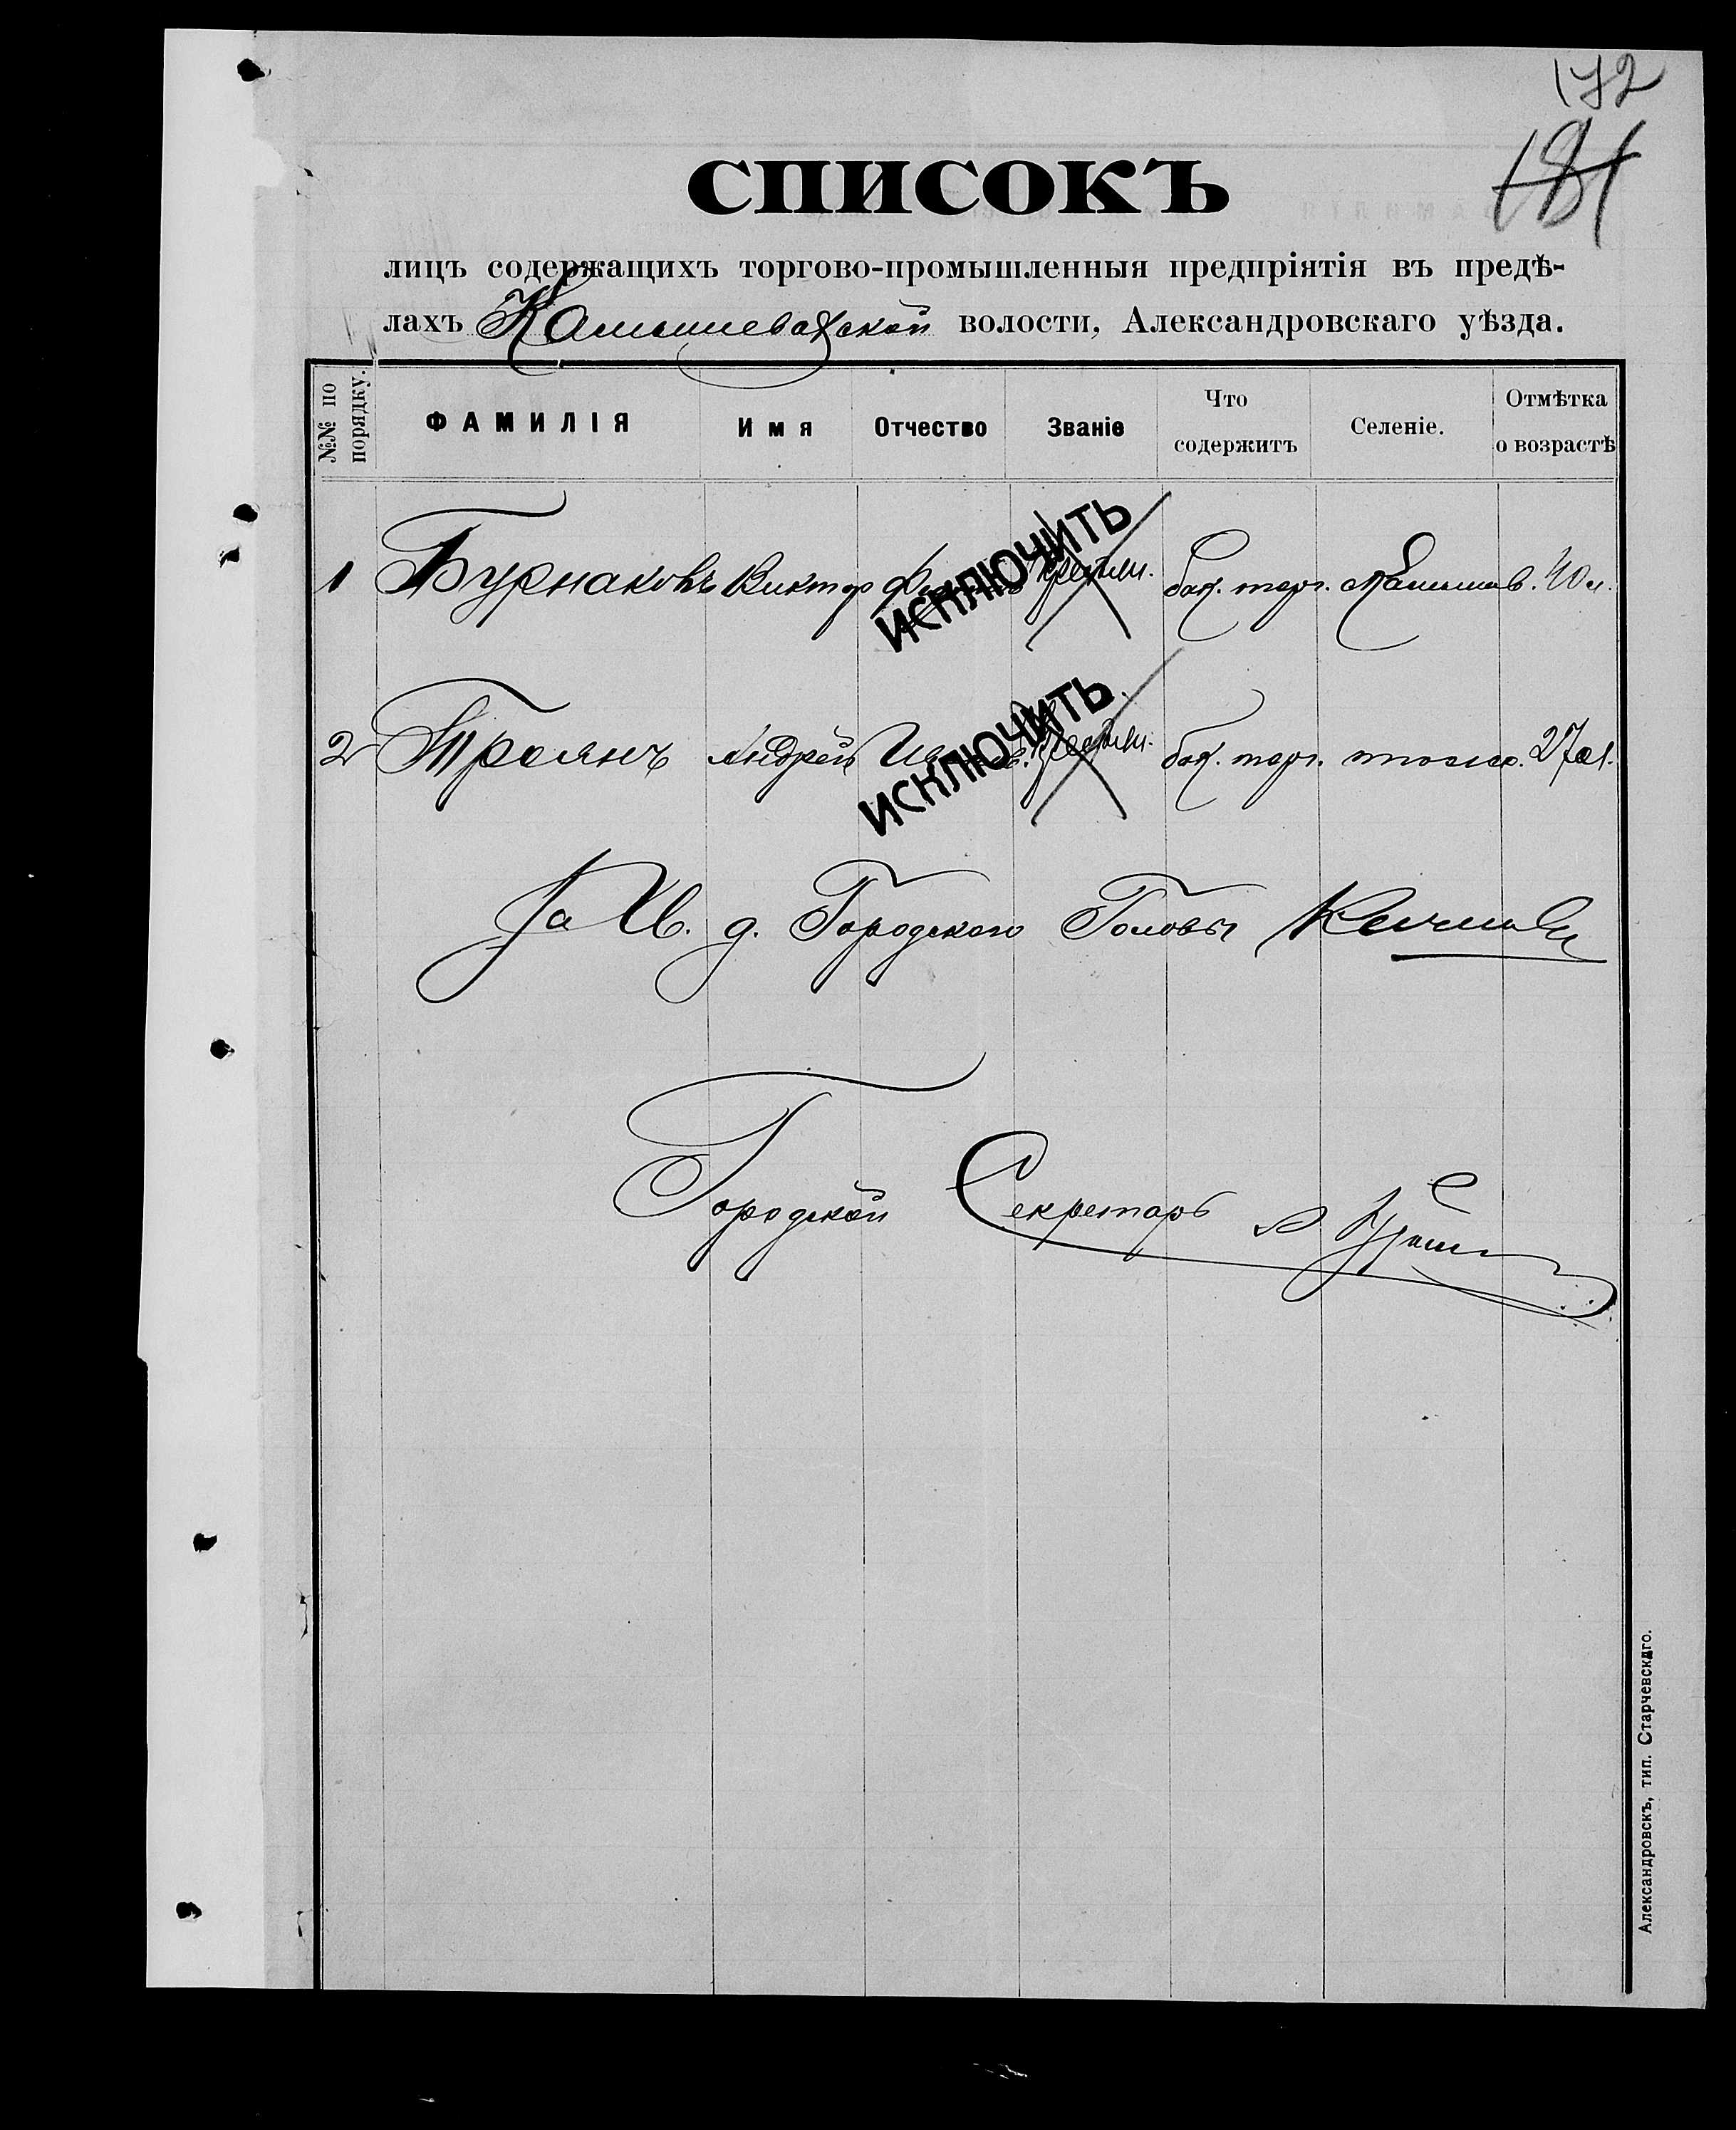 172
181
СПИСОКЪ
лицъ содержащихъ торгово-промышленныя предпріятія въ предѣ-
лахъ Камышевахской волости, Александровскаго уѣзда.
№№ по порядку. ФАМИЛІЯ Имя Отчество Званіе Что содержитъ Селеніе. Отмѣтка о возрастѣ
1 Бурнаковъ Викторъ крестьян. бак. торг. Камышев. 40 л.
ИСКЛЮЧИТЬ
2 Троянъ Андрей крестьян. бак. торг. тоже. 27 л.
ИСКЛЮЧИТЬ.
За И. д. Городского Головы
Городской Секретарь
Александровскъ, тип. Старчевскаго.